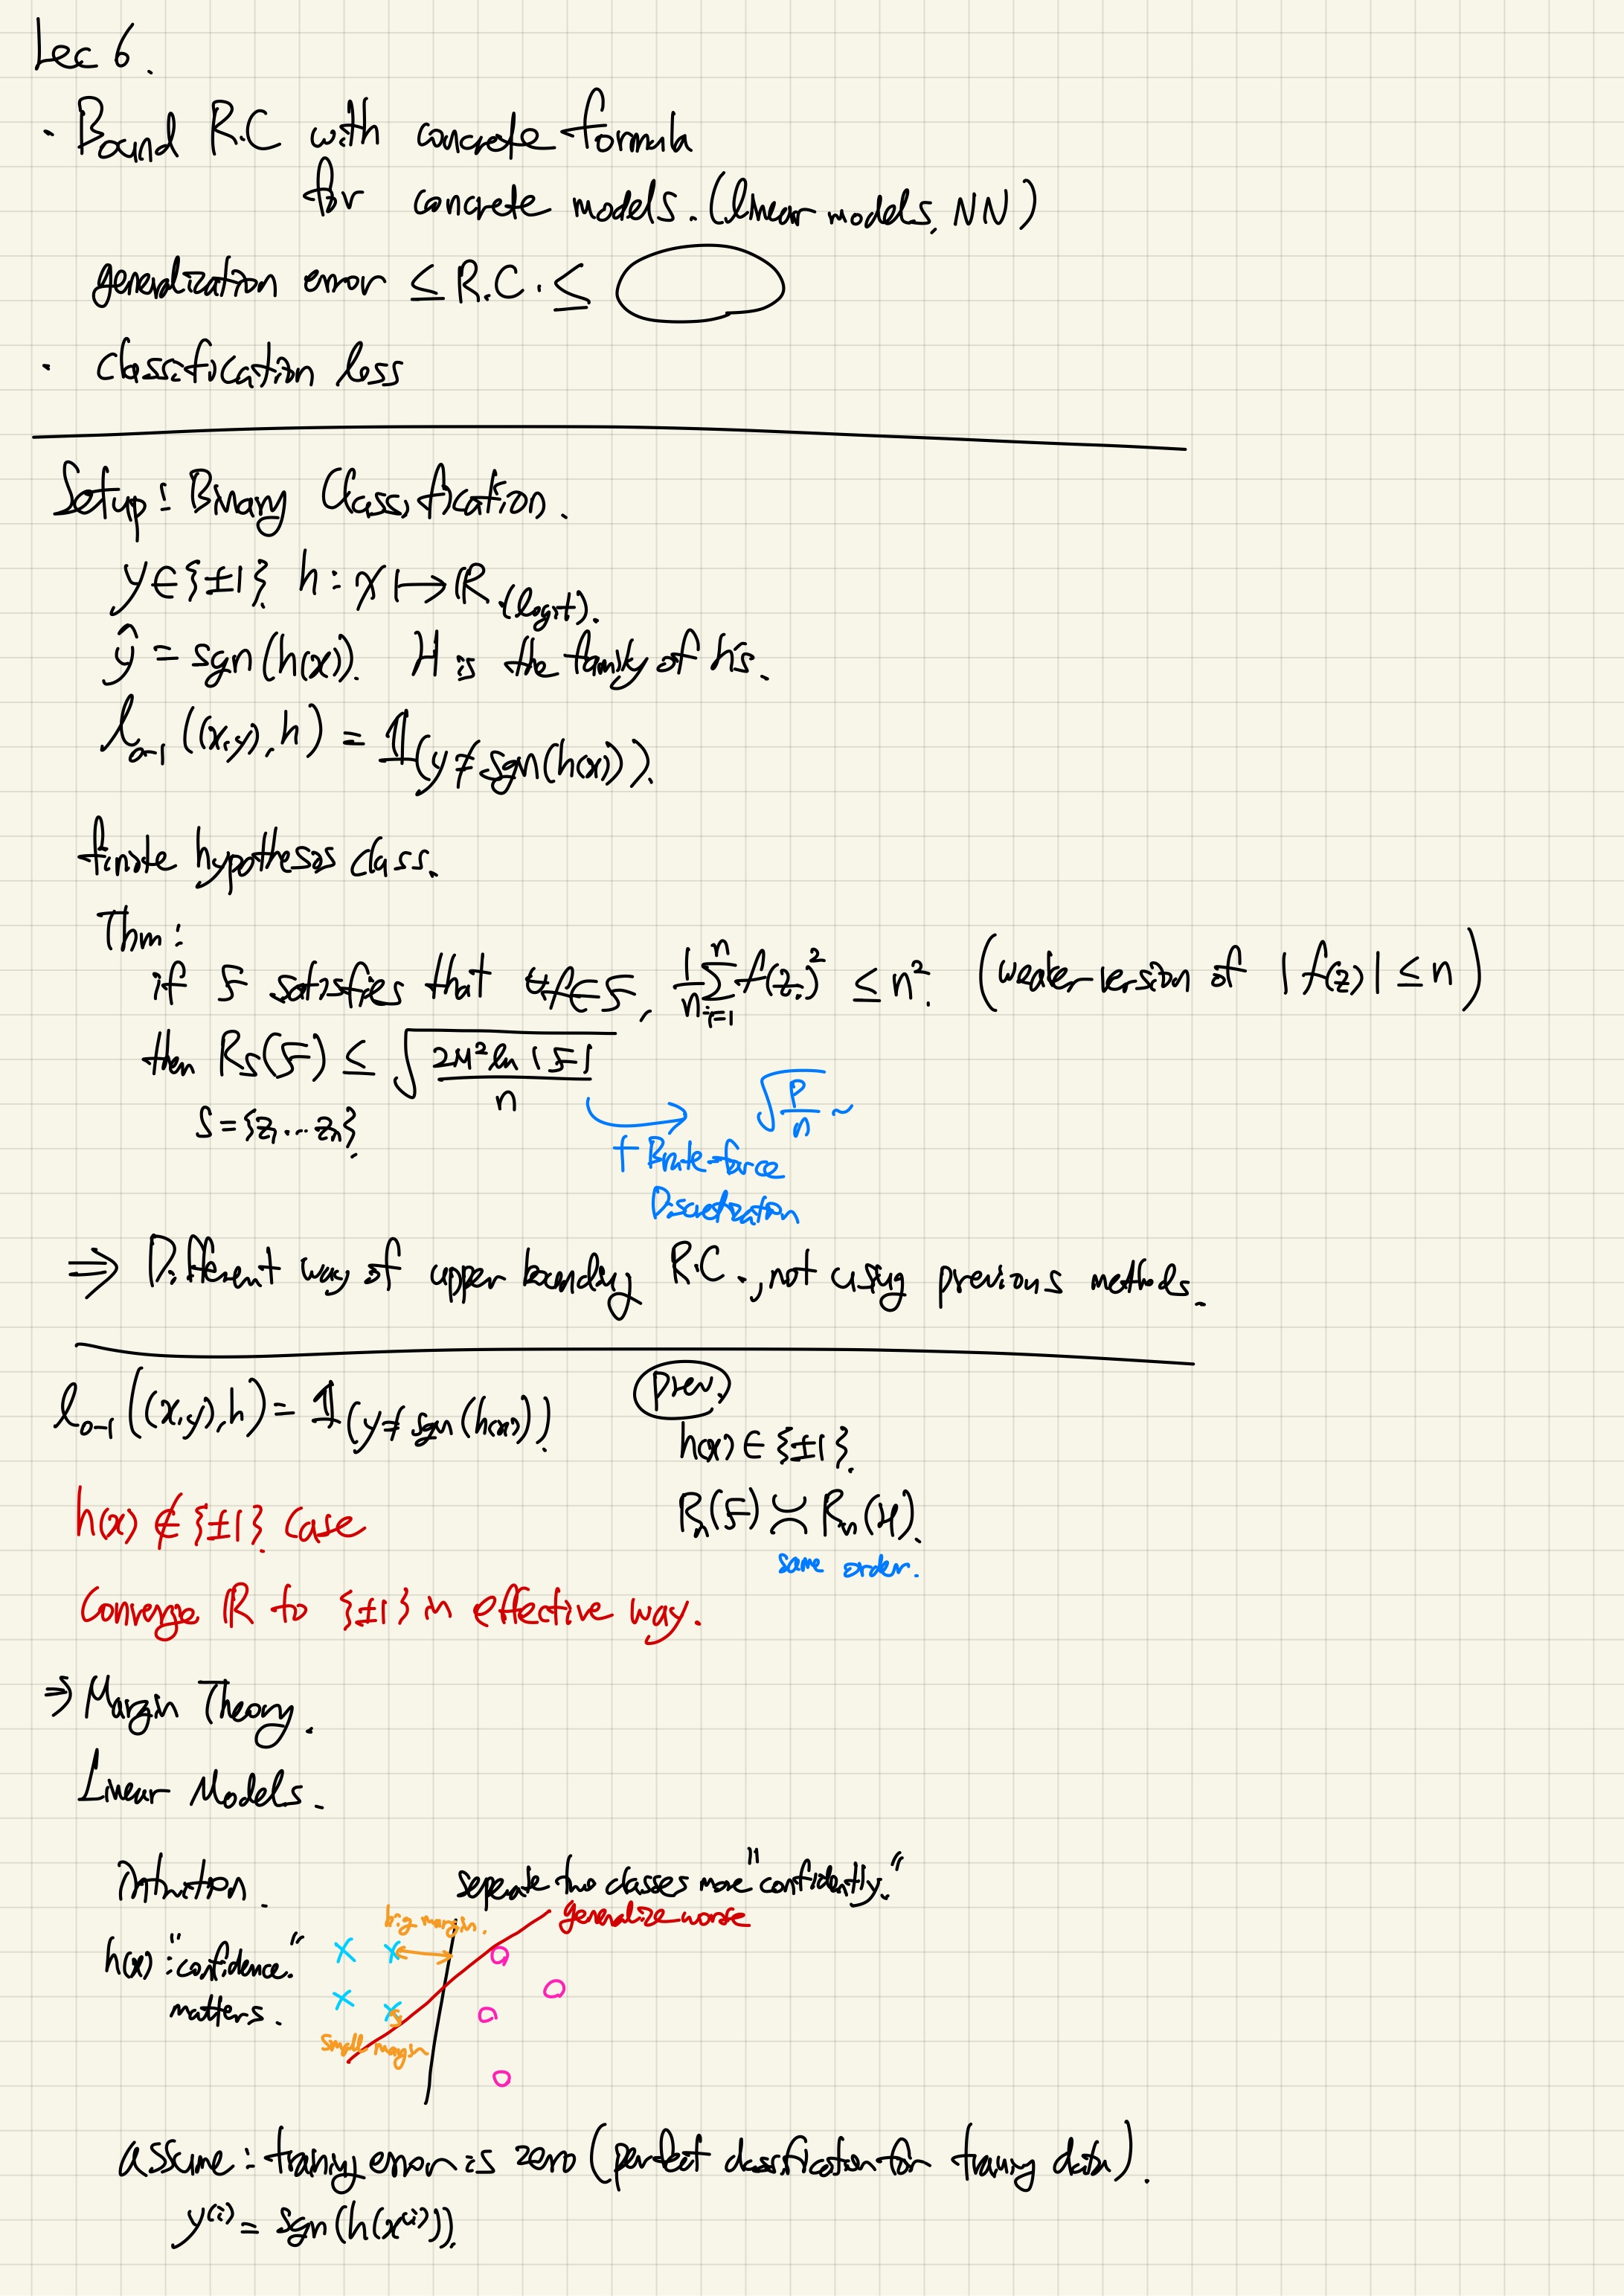 Lec 6.
· Bound R.C with concrete formula
for concrete models. (linear models, NN)
generalization error ≤ R.C. ≤
· classification loss
Setup: Binary Classification.
y ∈ {±1}. h: X ↦ ℝ (logit).
ŷ = sgn(h(x)). H is the family of h's.
ℓ₀₋₁((x,y),h) = 𝟙(y ≠ sgn(h(x))).
finite hypothesis class.
Thm:
if F satisfies that ∀f∈F, 1/n Σᵢ₌₁ⁿ f(zᵢ)² ≤ n². (weaker version of |f(z)| ≤ n)
then R_S(F) ≤ √(2M² ln |F| / n)
S = {z₁...zₙ}.
√(p/n) ~
+ Brute-force
Discretization
⇒ Different way of upper bounding R.C., not using previous methods.
ℓ₀₋₁((x,y),h) = 𝟙(y ≠ sgn(h(x))).
prev.
h(x) ∈ {±1}.
Rₙ(F) ≍ Rₙ(H).
same order.
h(x) ∉ {±1}. case
Converge ℝ to {±1} in effective way.
⇒ Margin Theory.
Linear Models.
Intuition.
seperate two classes more "confidently."
generalize worse
big margin.
h(x): "confidence."
matters.
small margin
assume: training error is zero (perfect classification for training data).
y⁽ⁱ⁾ = sgn(h(x⁽ⁱ⁾)).